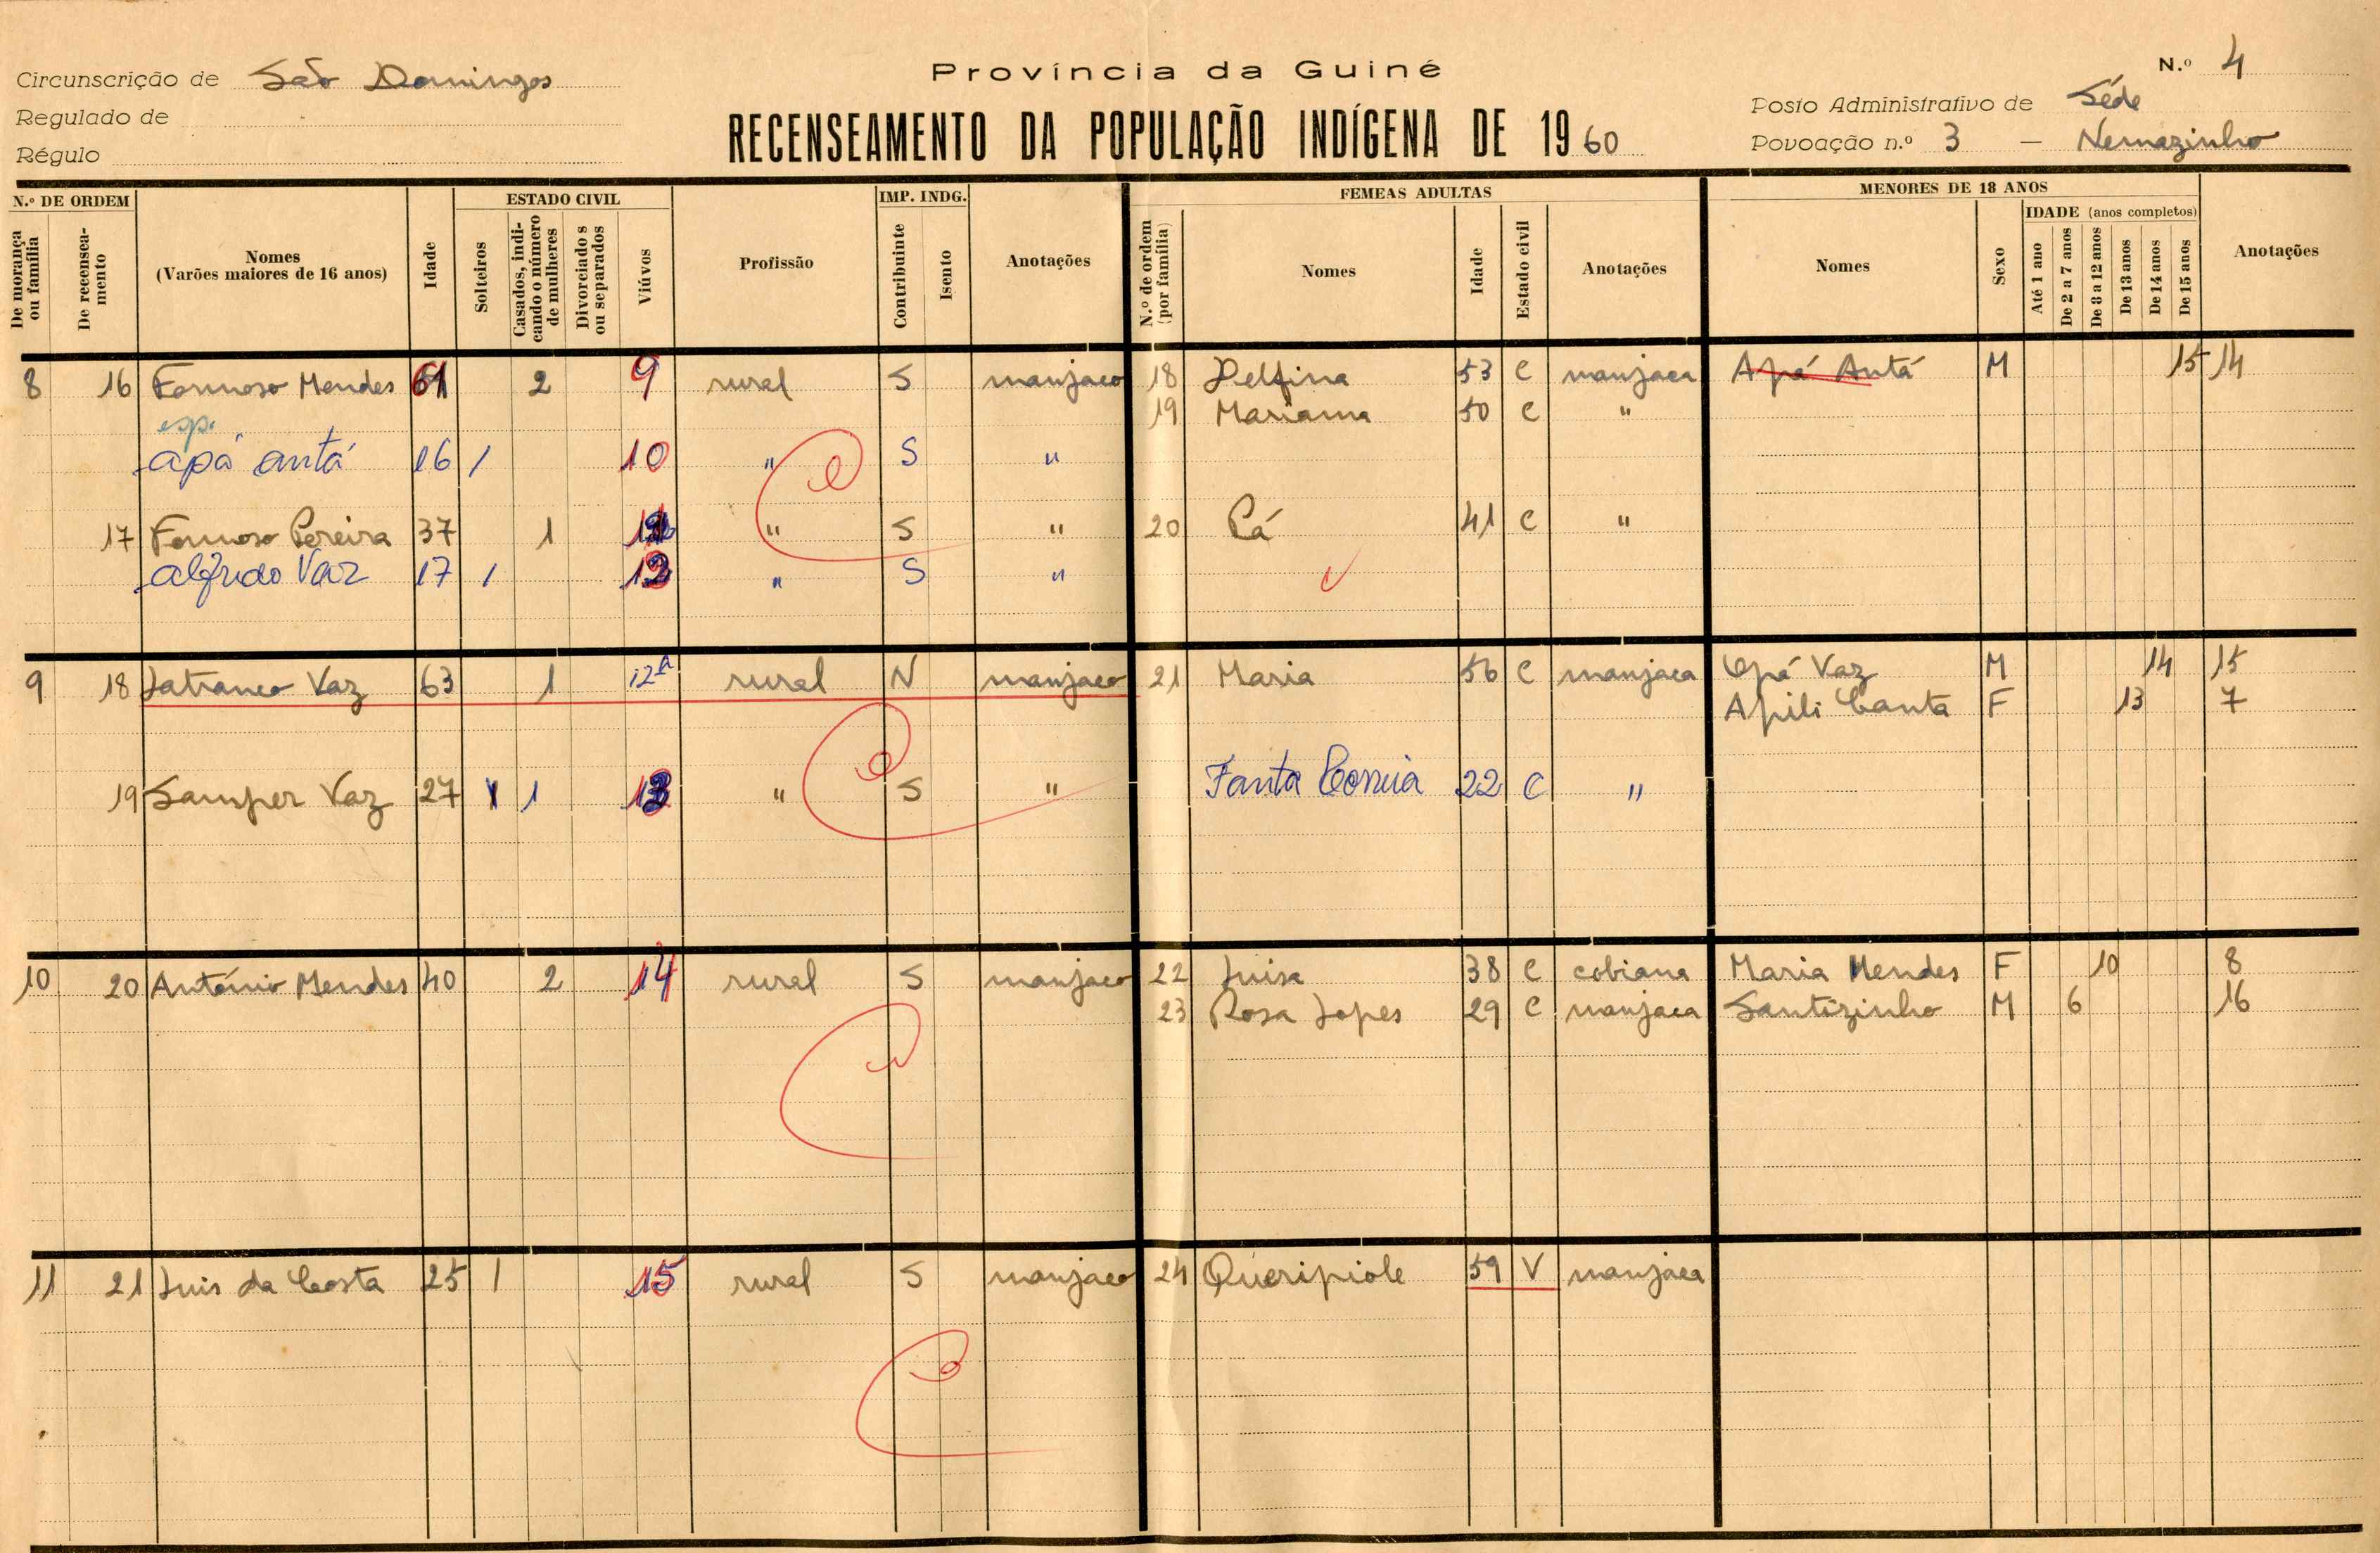 Província da Guiné
N.º 4
Circunscrição de São Domingos
Regulado de
Régulo
RECENSEAMENTO DA POPULAÇÃO INDÍGENA DE 1960
Posto Administrativo de Séde
Povoação n.º 3 — Nemazinho
N.º DE ORDEM
De morança ou família
De recenseamento
Nomes
(Varões maiores de 16 anos)
Idade
ESTADO CIVIL
Solteiros
Casados, indicando o número de mulheres
Divorciados ou separados
Viúvos
Profissão
IMP. INDG.
Contribuinte
Isento
Anotações
FEMEAS ADULTAS
N.º de ordem (por família)
Nomes
Idade
Estado civil
Anotações
MENORES DE 18 ANOS
Nomes
Sexo
IDADE (anos completos)
Até 1 ano
De 2 a 7 anos
De 8 a 12 anos
De 13 anos
De 14 anos
De 15 anos
Anotações
8 16 Formoso Mendes 61 2 9 rural S manjaco 18 Delfina 53 C manjaca Apá Antá M 15 14
19 Mariama 50 C "
esp.
apá antá 16 1 10 " S "
17 Formoso Pereira 37 1 " S " 20 Pá 41 C "
alfredo Vaz 17 1 " S "
9 18 Latranco Vaz 63 1 12A rural N manjaco 21 Maria 56 C manjaca Opá Vaz M 14 15
Apili Canta F 13 7
19 Samper Vaz 27 1 13 " S " Fanta Correia 22 C "
10 20 António Mendes 40 2 14 rural S manjaco 22 Luisa 38 C cobiana Maria Mendes F 10 8
23 Rosa Lopes 29 C manjaca Santizinho M 6 16
11 21 Luis da Costa 25 1 15 rural S manjaco 24 Queripiole 59 V manjaca